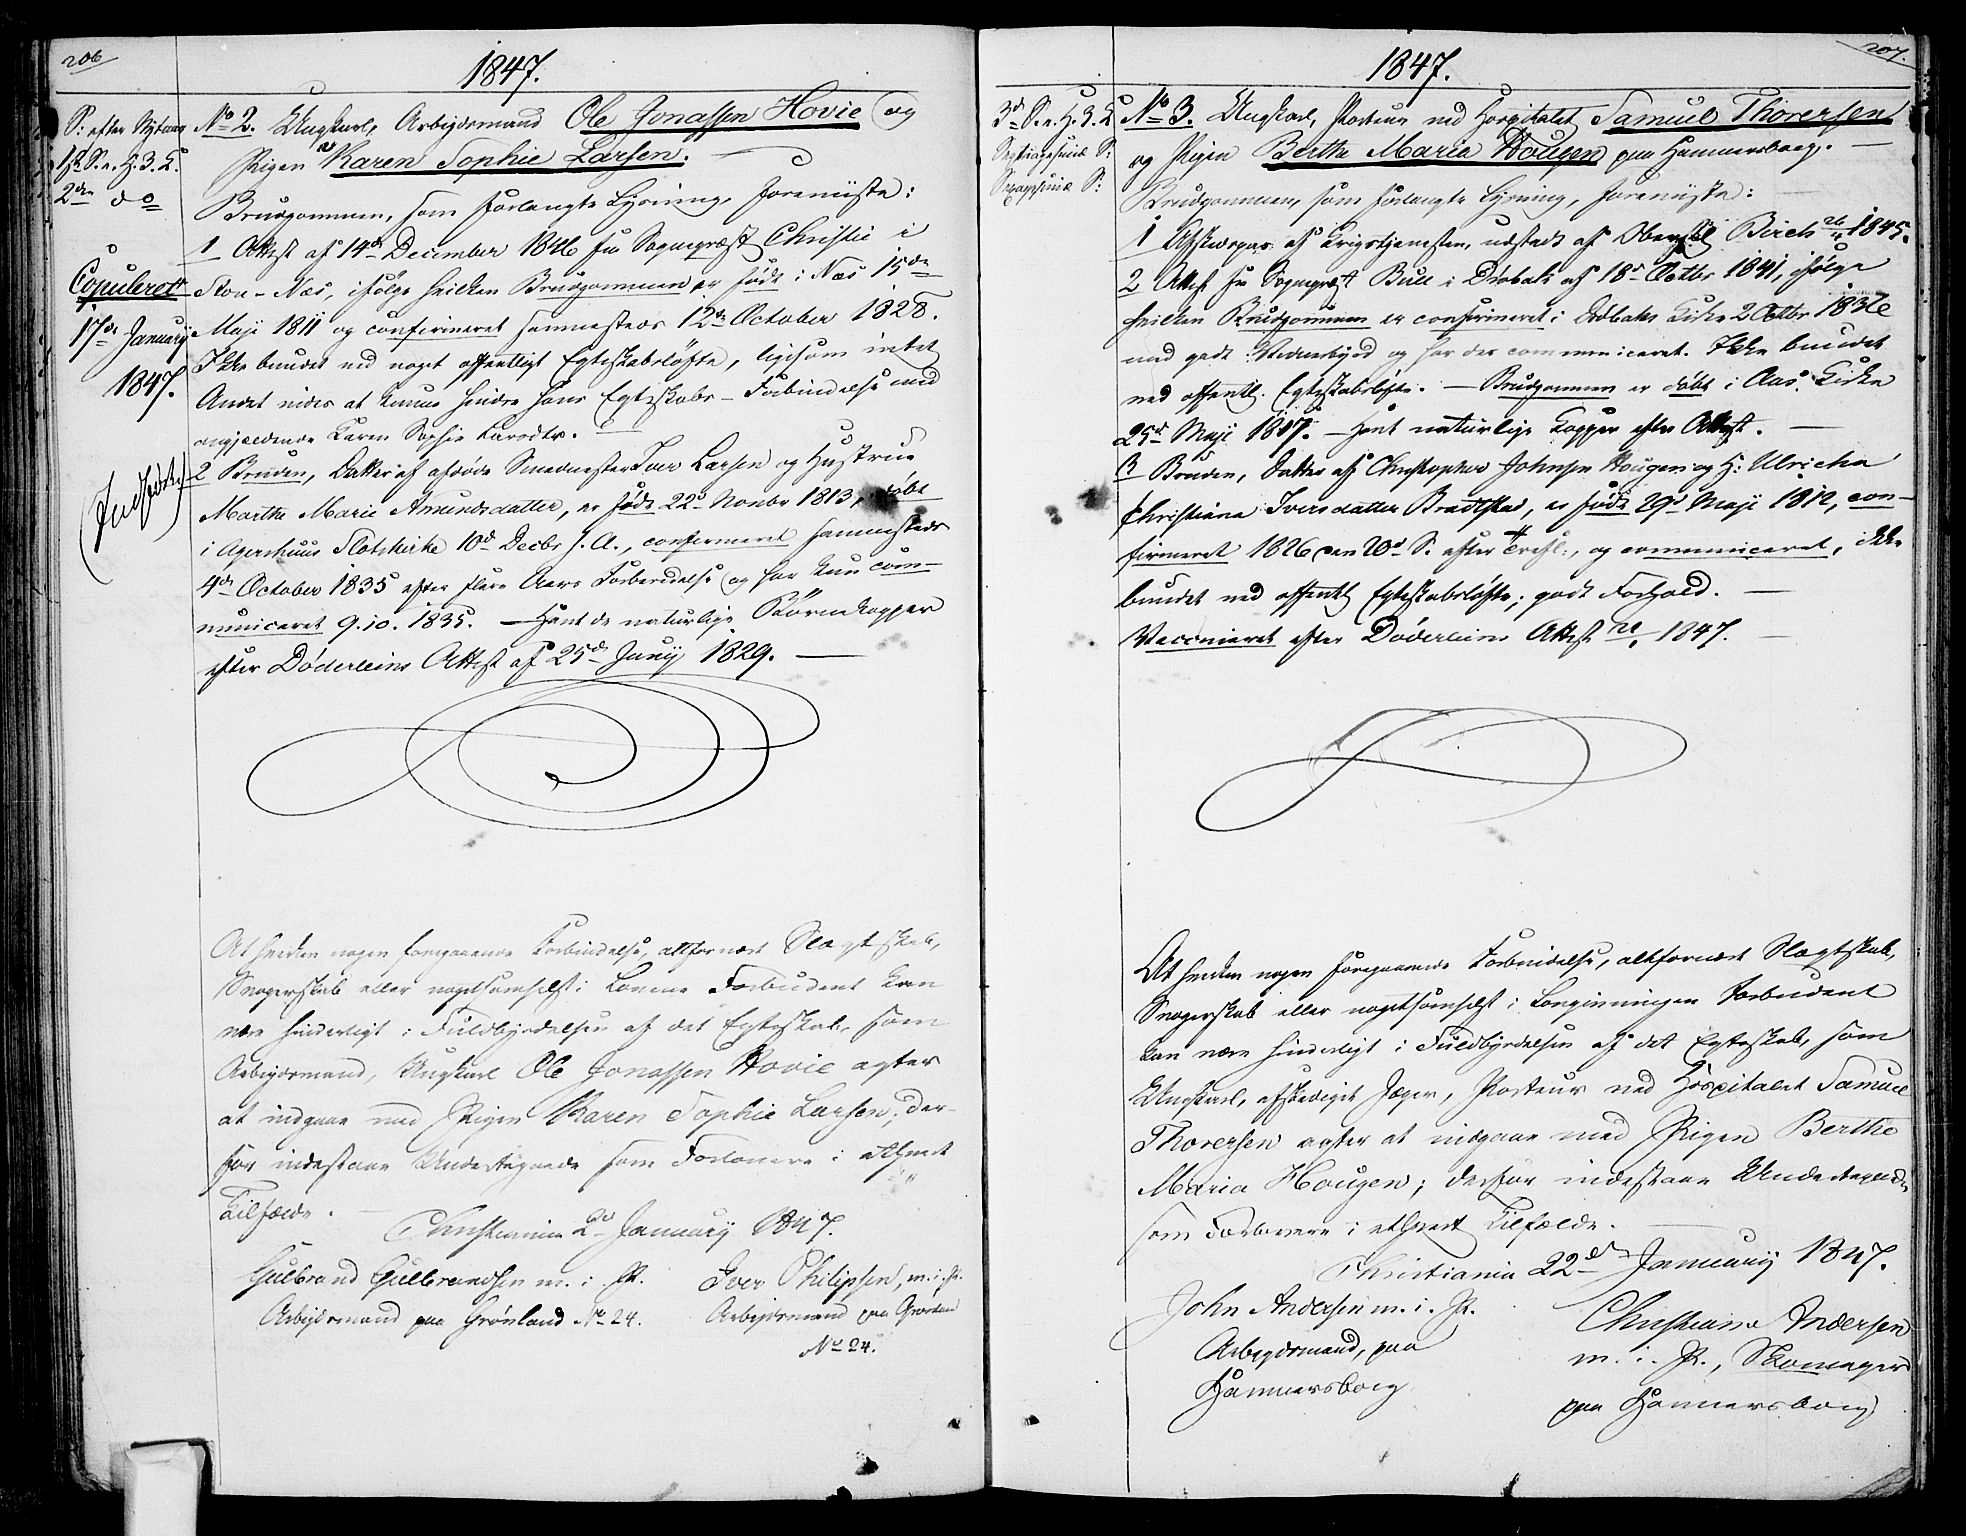 206
1847.
S: efter Nytaar
1ste S. e. H. 3. K.
2den do
Copuleret
17de January
1847.
(Indført.)
No 2. Ungkarl, Arbeidsmand Ole Jonassen Hovie og
Pigen Karen Sophie Larsen.
Brudgommen, som forlangte Lysning, foreviiste:
1 Attest af 14de December 1846 fra Sognepræst Christie i
Næs, ifølge hvilken Brudgommen er født i Næs 15de
Maji 1811 og confirmeret sammesteds 12de October 1828.
Ikke bundet ved noget offentligt Egteskabsløfte, ligesom intet
Andet vides at kunne hindre hans Egteskabs-Forbindelse med
angjældende Karen Sophie Larsdtr.
2 Bruden, Datter af afdøde Smedmester Iver Larsen og Hustrue
Marthe Marie Amundsdatter, er født 22de Novbr 1813, døbt
i Agershuus Slotskirke 10de Decbr s. A., confirmeret sammesteds
4de October 1835 efter flere Aars Forberedelse og har kun com-
municeret 9.10.1835. — Havt de naturlige Børnekopper
efter Døderleins Attest af 25de Juny 1829. —
At hverken nogen foregaaende Forbindelse, altfornært Slægtskab,
Svogerskab eller nogetsomhelst i Lovene Forbudent kan
være hinderligt i Fuldbyrdelsen af det Egteskab, som
Arbeidsmand, Ungkarl Ole Jonassen Hovie agter
at indgaae med Pigen Karen Sophie Larsen; der-
for indestaae Undertegnede som Forlovere i ethvert
Tilfælde.
Christiania 2de January 1847.
Gulbrand Gulbrandsen m. i. P. Iver Philipsen, m. i. P.
Arbeidsmand paa Grønland No 24. Arbeidsmand paa Grønland
No 24.
207.
1847.
3de S. e. H. 3. K.
Septuagesimæ S:
Sexagesimæ S:
No 3. Ungkarl, Porteur ved Hospitalet Samuel Thoresen
og Pigen Berthe Maria Hougen paa Hammersborg. —
Brudgommen, som forlangte Lysning, foreviiste:
1 Afskedspas af Krigstjenesten, udstedt af Oberstl Birch 26/4 1845.
2 Attest fra Sognepræst Bull i Drøbak af 18de Octbr 1841, ifølge
hvilken Brudgommen er confirmeret i Drøbaks Kirke 2 Octbr 1836
med godt Vidnesbyrd og har der communiceret. Ikke bundet
ved offentl. Egteskabsløfte. — Brudgommen er døbt i Aas Kirke
25de Maji 1817. — Havt naturlige Kopper efter Attest. —
3 Bruden, Datter af Christopher Johnsen Hougen og H: Ulricha
Christiane Iversdatter Bradtstad, er født 29de Maji 1812, con-
firmeret 1826 den 20de S. efter Trefh:, og communiceret, ikke
bundet ved offentl Egteskabsløfte; godt Forhold. —
Vaccineret efter Døderleins Attest 21/1 1847. —
At hverken nogen foregaaende Forbindelse, altfornært Slægtskab,
Svogerskab eller nogetsomhelst i Lovgivningen Forbudent
kan være hinderligt i Fuldbyrdelsen af det Egteskab, som
Ungkarl, afskediget Jæger, Porteur ved Hospitalet Samuel
Thoresen agter at indgaae med Pigen Berthe
Maria Hougen; derfor indestaae Undertegnede
som Forlovere i ethvert Tilfælde. —
Christiania 22de January 1847.
John Andersen m. i. P. Christian Andersen
Arbeidsmand, paa m. i. P., Skomager
Hammersborg paa Hammersborg